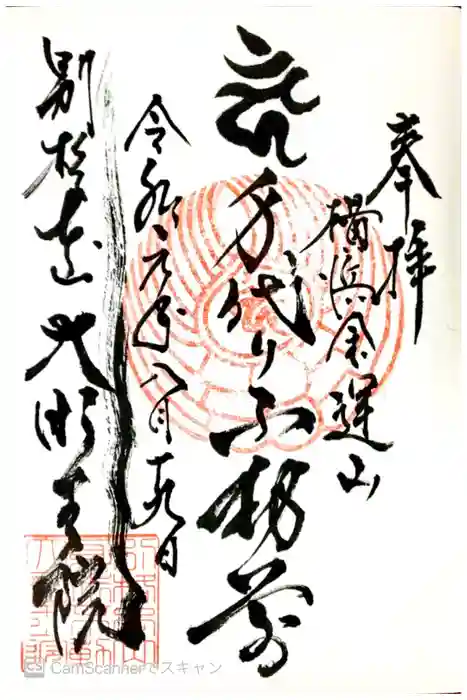 奉拝
横浜金運山
身代り不動尊
令和元年八月十九日
別格本山 大明王院
CamScannerでスキャン